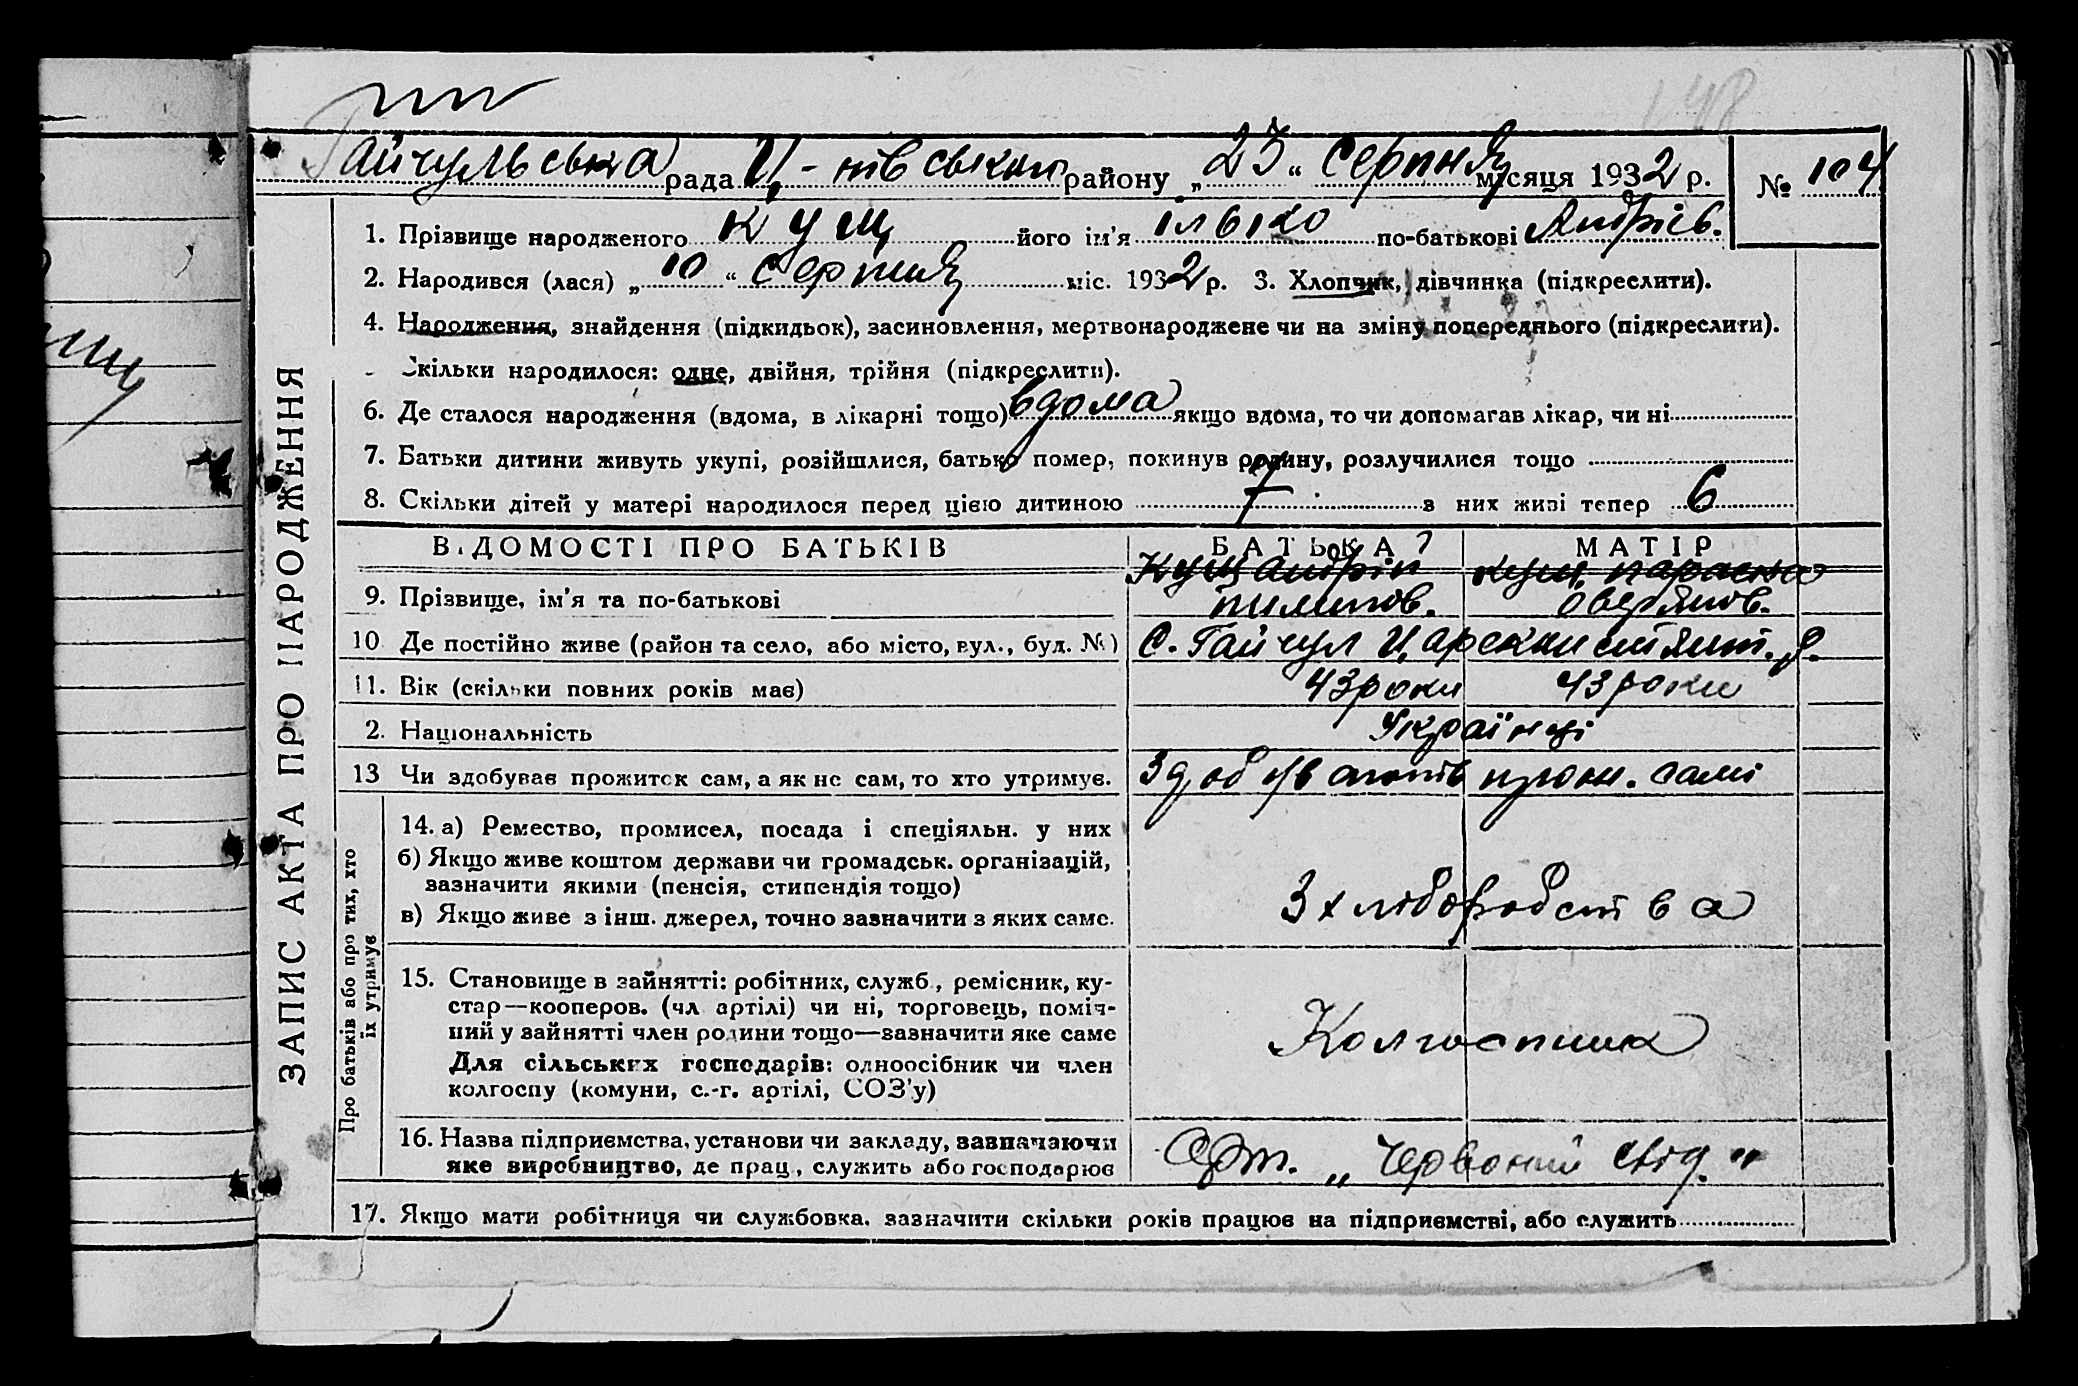 148
Гайчульська рада Ц-тівський району „ 23 “ Серпня місяця 1932 р. № 104
1. Прізвище народженого Кущ його ім'я Ілько по-батькові Андрієв.
2. Народився (лася) „ 10 “ Серпня міс. 1932 р. 3. Хлопчик, дівчинка (підкреслити).
4. Народження, знайдення (підкидьок), засиновлення, мертвонароджене чи на зміну попереднього (підкреслити).
Скільки народилося: одне, двійня, трійня (підкреслити).
6. Де сталося народження (вдома, в лікарні тощо) вдома якщо вдома, то чи допомагав лікар, чи ні
7. Батьки дитини живуть укупі, розійшлися, батько помер, покинув родину, розлучилися тощо
8. Скільки дітей у матері народилося перед цією дитиною 7 з них живі тепер 6
ЗАПИС АКТА ПРО НАРОДЖЕННЯ
ВІДОМОСТІ ПРО БАТЬКІВ БАТЬКА МАТІР
Кущ Андрій Кущ Параска
9. Прізвище, ім'я та по-батькові Пилипов. Овер'янов.
10 Де постійно живе (район та село, або місто, вул., буд. №) С. Гайчул Ц, арекон
11. Вік (скільки повних років має) 43 роки 43 роки
2. Національність Українці
13 Чи здобуває прожиток сам, а як не сам, то хто утримує. Здобувають прож. самі
Про батьків або про тих, хто їх утримує
14. а) Ремество, промисел, посада і спеціяльн. у них
б) Якщо живе коштом держави чи громадськ. організацій,
зазначити якими (пенсія, стипендія тощо)
З хліборобства
в) Якщо живе з інш. джерел, точно зазначити з яких саме.
15. Становище в зайнятті: робітник, служб., ремісник, ку-
стар—кооперов. (чл артілі) чи ні, торговець, поміч-
ний у зайнятті член родини тощо—зазначити яке саме
Колгоспник
Для сільських господарів: одноосібник чи член
колгоспу (комуни, с.-г. артілі, СОЗ'у)
16. Назва підприємства, установи чи закладу, зазначаючи
яке виробництво, де прац., служить або господарює Арт. „Червоний Схід"
17. Якщо мати робітниця чи службовка, зазначити скільки років працює на підприємстві, або служить